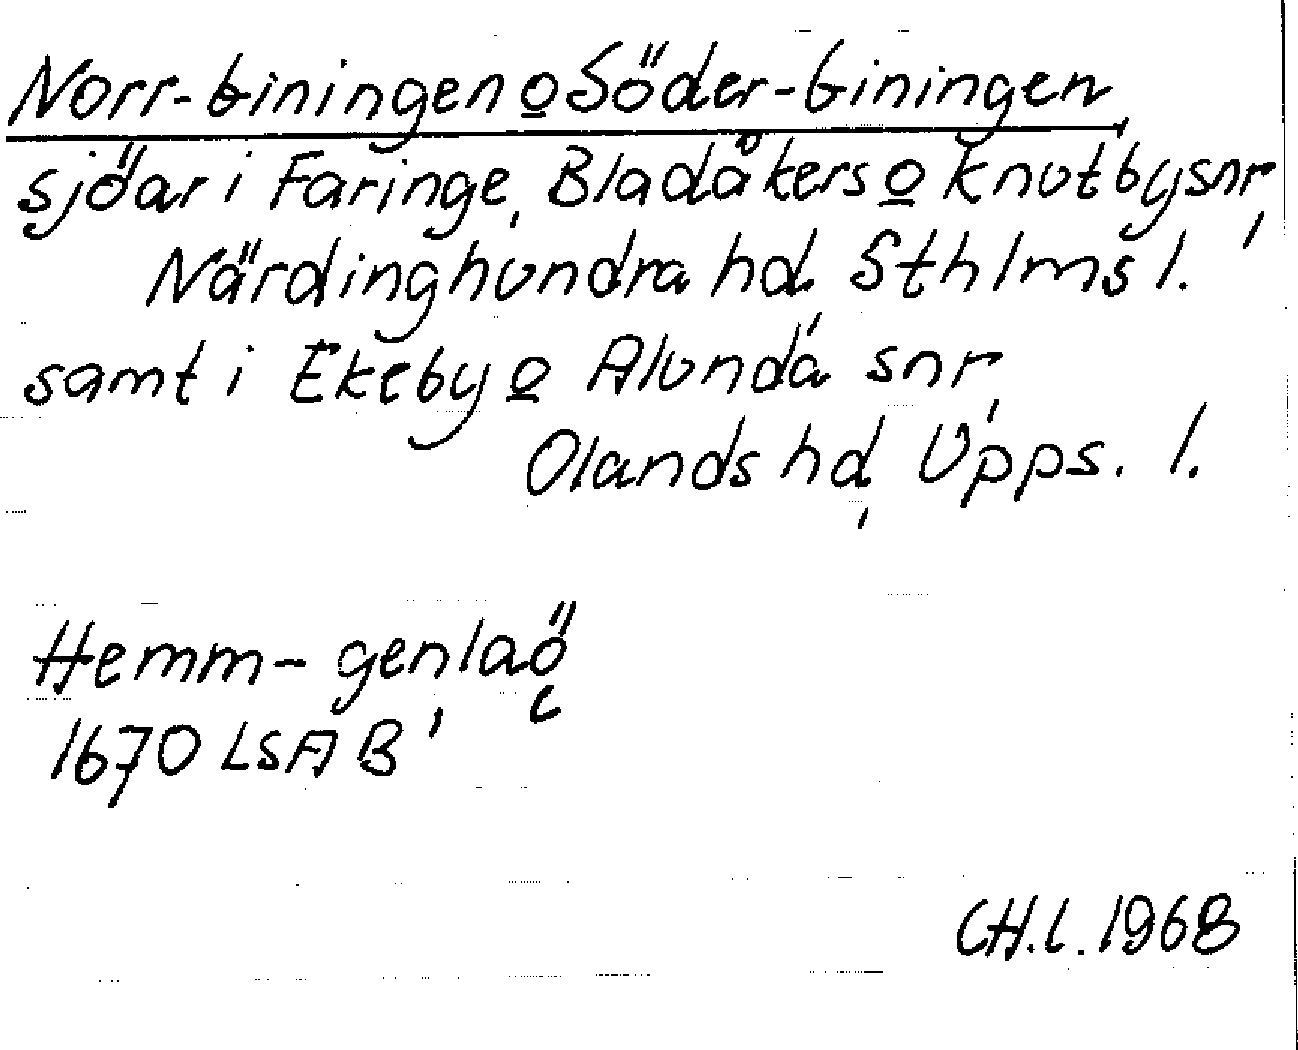 Norr-Giningen o Söder-Giningen
sjöar i Faringe, Bladåkers o Knutby snr,
Närdinghundra hd, Sthlms l.
samt i Ekeby o Alunda snr,
Olands hd, Upps. l.
Hemm-
1670 LSA B'
CH.L. 1968